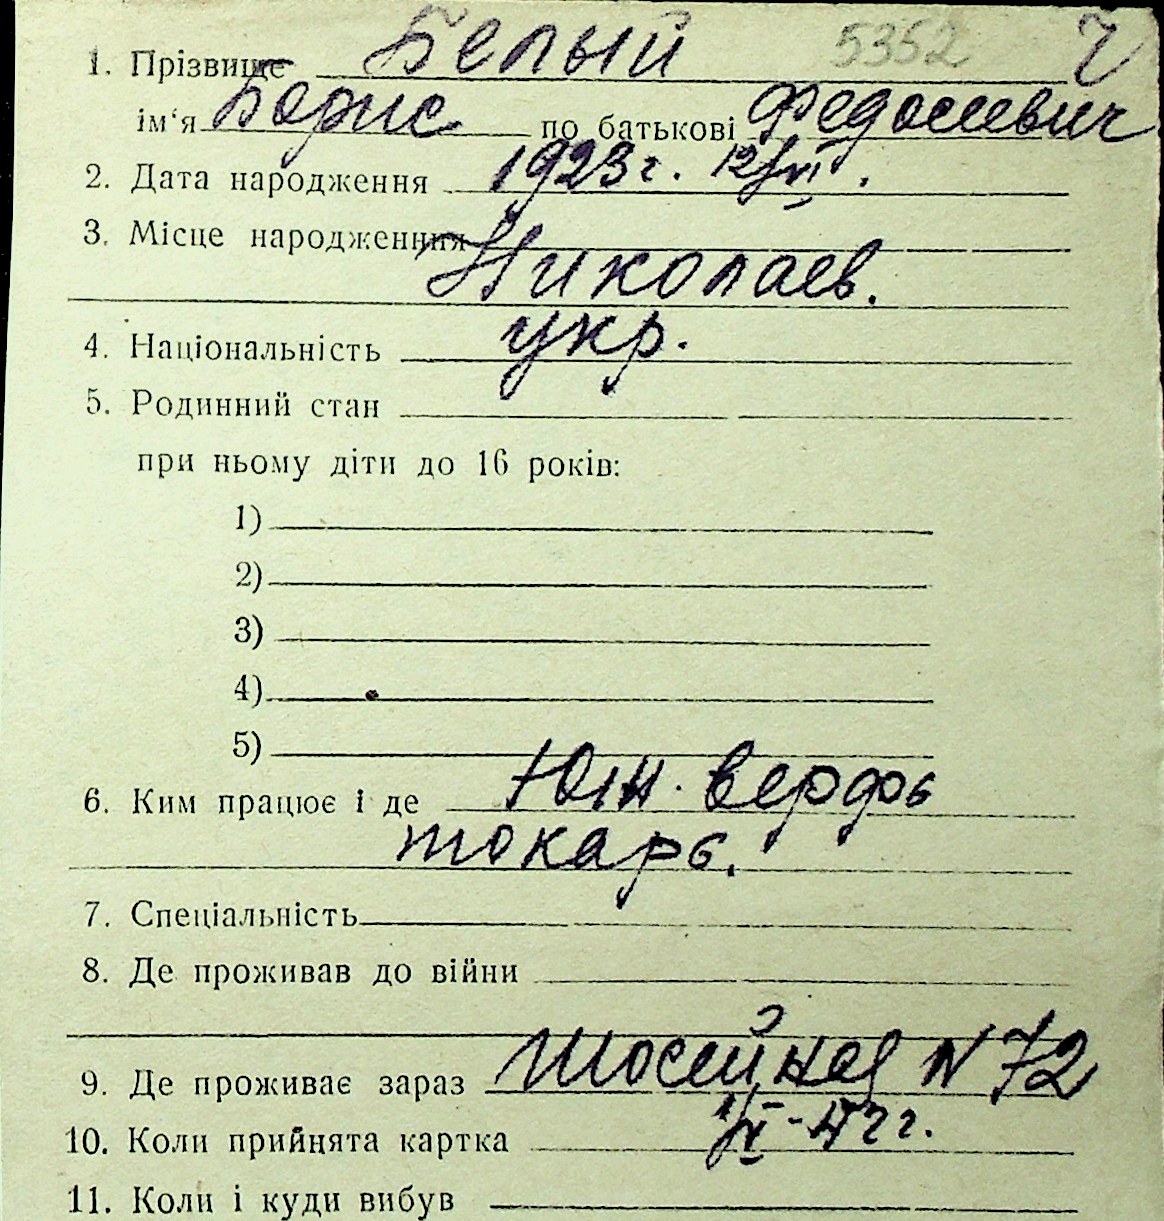 1. Прізвище Белый 5352
ім'я Борис по батькові Федосиевич
2. Дата народження 1923 г. 12/VI.
3. Місце народженння
Николаев.
4. Національність укр.
5. Родинний стан
при ньому діти до 16 років:
1)
2)
3)
4)
5)
6. Ким працює і де Южн. верфь
токарь.
7. Спеціальність
8. Де проживав до війни
9. Де проживає зараз Шосейная N 72
10. Коли прийнята картка
11. Коли і куди вибув